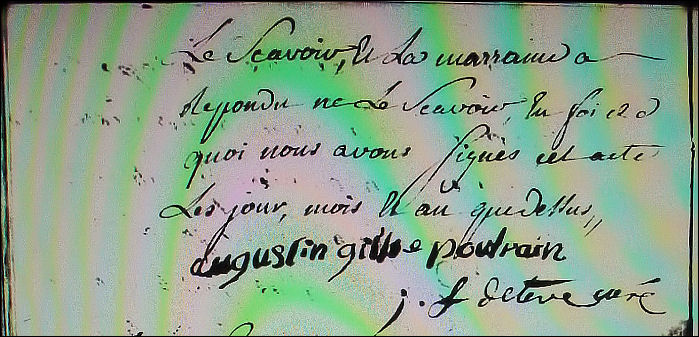 Le Scavoir, Et La marraine a
Repondu ne Le Scavoir, En foi de
quoi nous avons signés cet acte
Les jour, mois Et an que dessus,,
augustin gille poulrain
j. f curé